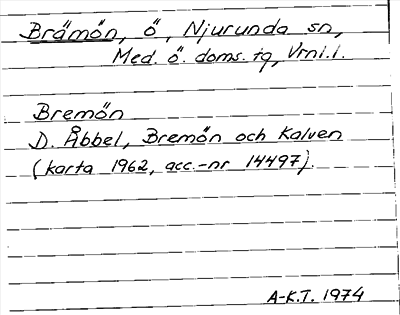 Brämön, ö, Njurunda sn,
Med. ö. doms. tg, Vrnl.l.
Bremön
D. Åbbel, Bremön och Kalven
(karta 1962, acc.-nr 14497).
A-K.T. 1974